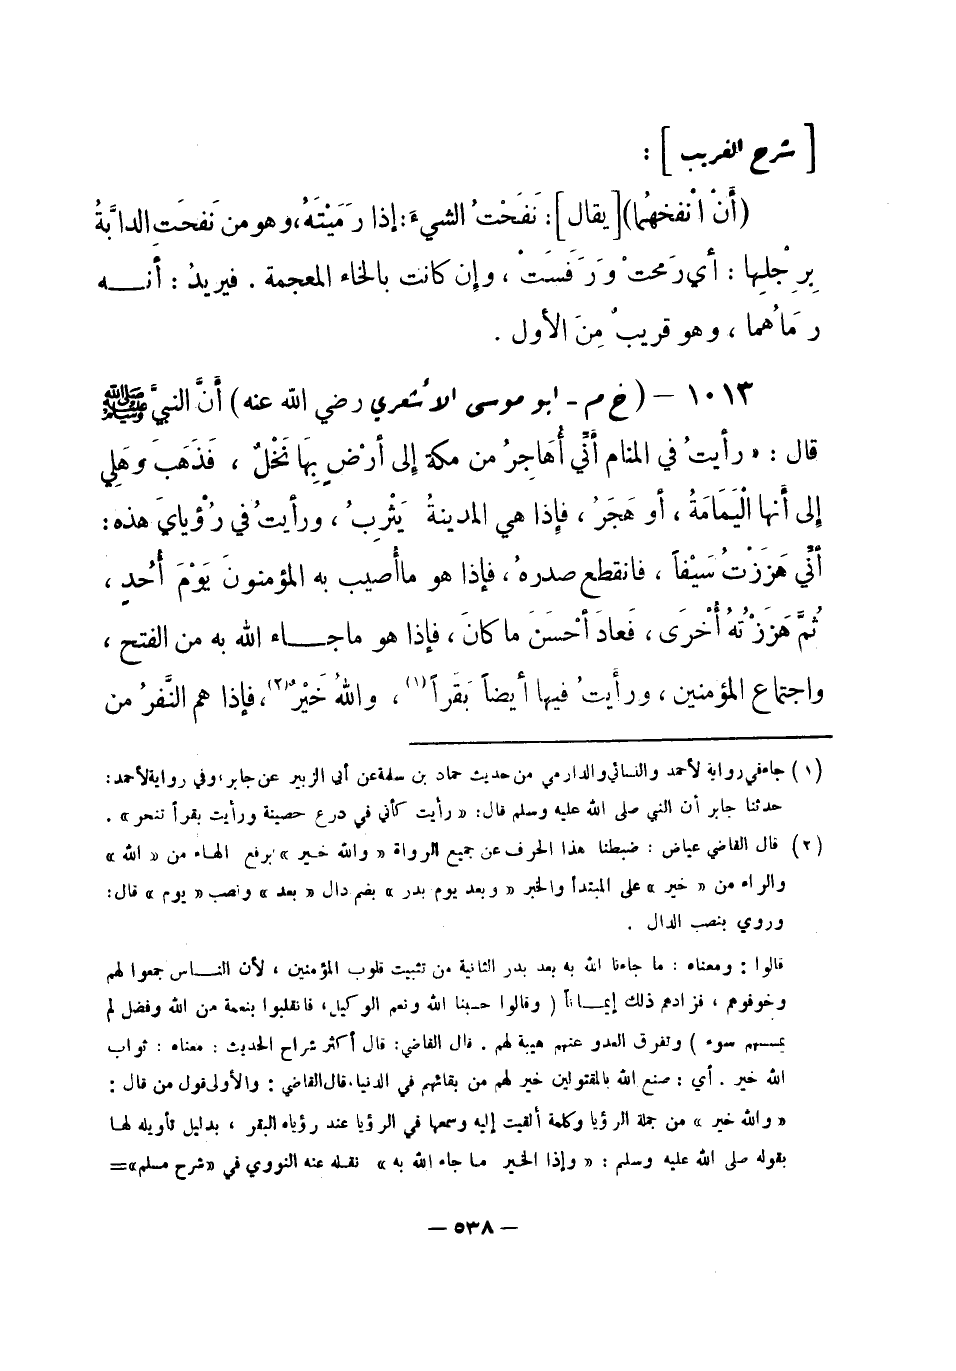 [ شرح الغريب ] :
(أَنْ انْفخهُما)[يقال]: نَفَحْتُ الشيءَ: إذا رَمَيْتَهُ، وهو من نَفحَتِ الدابَّةُ
بِرِجْلِها : أي رَمحتْ وَرَفَستْ ، وإن كانت بالخاء المعجمة . فيريدُ : أنــه
رمَاهُما ، وهو قريبٌ مِنَ الأول .
١٠١٣ – (خ م - ابو موسى الأشعري رضي الله عنه) أَنَّ النبيَّ ﷺ
قال : « رأيتُ في المنام أنِّي أُهَاجِرُ من مكة إلى أرْضٍ بِهَا نَخْلٌ ، فَذَهَبَ وَهَلِي
إلى أنها الْيَمَامَةُ ، أو هَجَرُ ، فإذا هي المدينةُ يَثْرِبُ ، ورأيتُ في رُؤْيايَ هذه :
أنِّي هَزَزْتُ سَيْفاً ، فانقطع صدرهُ ، فإذا هو ما أُصيب به المؤمنونَ يَوْمَ أُحُدٍ ،
ثُمَّ هَزَزْتُهُ أُخْرَى ، فَعادَ أحْسَنَ ما كانَ ، فإذا هو ماجــاء الله به من الفتح ،
واجتماع المؤمنين ، ورأيتُ فيها أيضاً بَقَراً (١) ، واللهُ خَيْرٌ (٢) ، فإذا هم النَّفرُ من
(١) جاء في رواية لأحمد والنسائي والدارمي من حديث حماد بن سلمة عن أبي الزبير عن جابر ، وفي رواية لأحمد :
حدثنا جابر أن النبي صلى الله عليه وسلم قال : « رأيت كأني في درع حصينة ورأيت بقراً تنحر » .
(٢) قال القاضي عياض : ضبطنا هذا الحرف عن جميع الرواة « والله خير » برفع الهاء من « الله »
والراء من « خير » على المبتدأ والخبر « وبعد يوم بدر » بضم دال « بعد » ونصب « يوم » قال :
وروي بنصب الدال .
قالوا : ومعناه : ما جاءنا الله به بعد بدر الثانية من تثبيت قلوب المؤمنين ، لأن النــاس جمعوا لهم
وخوفوهم ، فزادهم ذلك إيمــاناً ( وقالوا حسبنا الله ونعم الوكيل ، فانقلبوا بنعمة من الله وفضل لم
يمسسهم سوء ) وتفرق العدو عنهم هيبة لهم . قال القاضي : قال أكثر شراح الحديث : معناه : ثواب
الله خير . أي : صنع الله بالمقتولين خير لهم من بقائهم في الدنيا . قال القاضي : والأولى قول من قال :
« والله خير » من جملة الرؤيا وكلمة ألقيت إليه وسمعها في الرؤيا عند رؤياه البقر ، بدليل تأويله لهــا
بقوله صلى الله عليه وسلم : « وإذا الخير ما جاء الله به » نقله عنه النووي في «شرح مسلم»=
– ٥٣٨ –